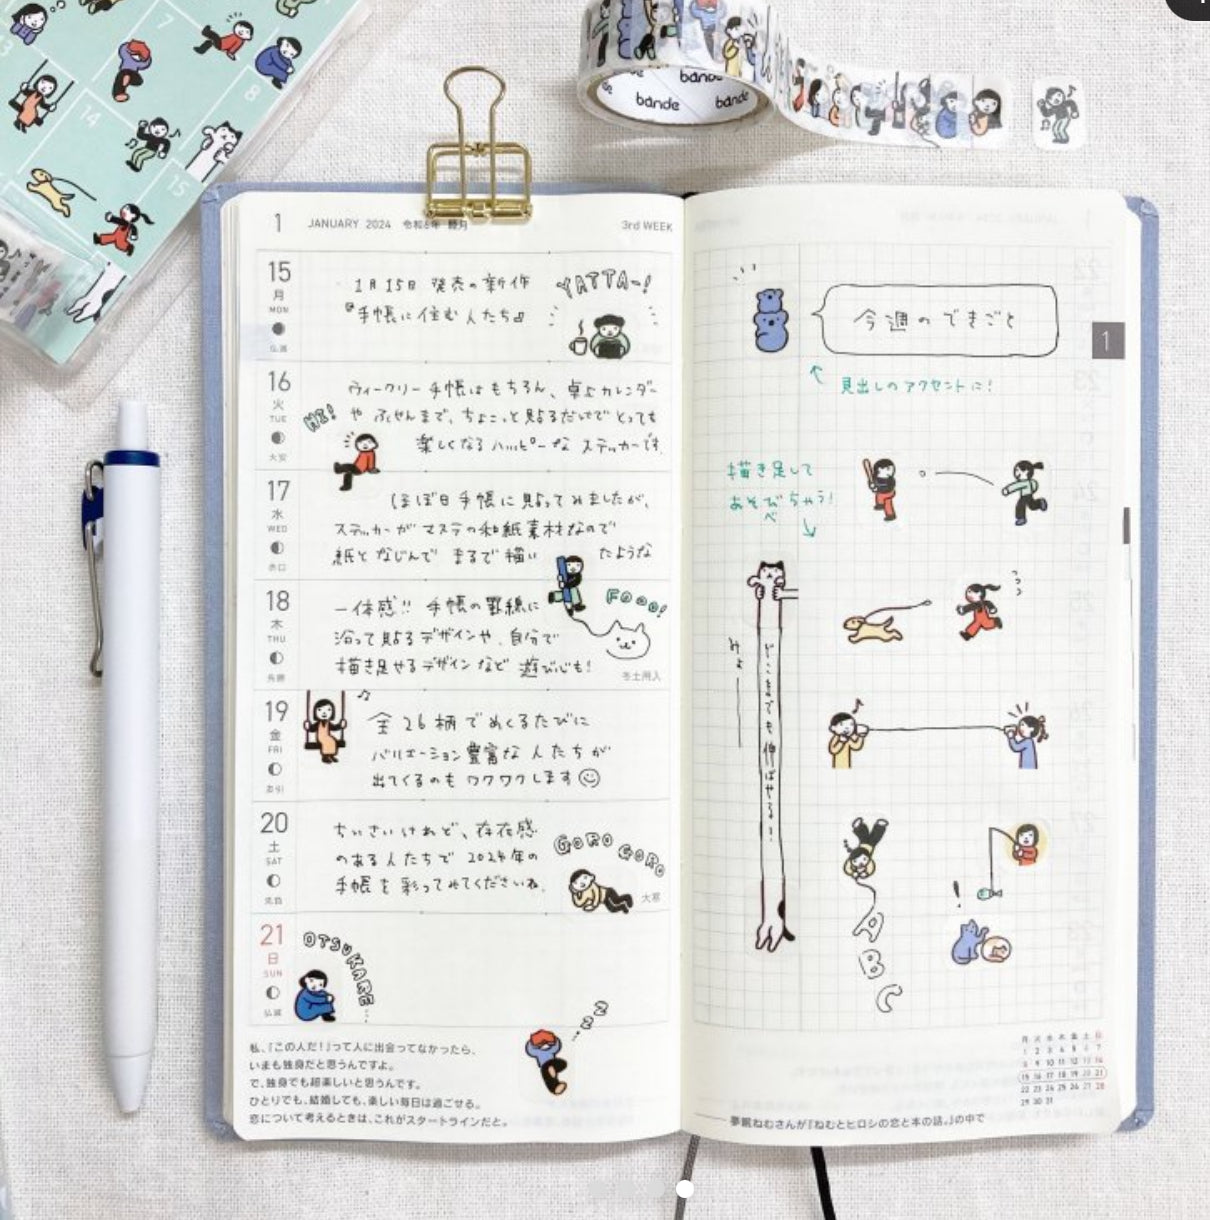 7
8
13
14
15
bánde
bánde
bánde
1 JANUARY 2024 令和6年 睦月 3rd WEEK
15
月
MON
仏滅
1月15日 発売の新作
『手帳に住む人たち』
YATTA~!
16
火
TUE
大安
HI!
ウィークリー手帳はもちろん、卓上カレンダー
や ふせんまで、ちょこっと貼るだけで とっても
楽しくなる ハッピーな ステッカーです。
17
水
WED
赤口
ほぼ日手帳に貼ってみましたが、
ステッカーが マステの和紙素材なので
紙となじんで まるで描い たような
18
木
THU
先勝
一体感!! 手帳の罫線に
沿って貼るデザインや、自分で
描き足せるデザインなど 遊び心も!
FOOO!
冬土用入
19
金
FRI
友引
全26柄でめくるたびに
バリエーション豊富な 人たちが
出てくるのも ワクワクします
20
土
SAT
先負
ちいさいけれど、存在感
のある人たちで 2024年の
手帳を彩ってみてくださいね。
GORO GORO
大寒
21
日
SUN
仏滅
OTSUKARE...
zzz
私、「この人だ!」って人に出会ってなかったら、
いまも独身だと思うんですよ。
で、独身でも超楽しいと思うんです。
ひとりでも、結婚しても、楽しい毎日は過ごせる。
恋について考えるときは、これがスタートラインだと。
今週のできごと
1
見出しのアクセントに!
描き足して
あそびちゃう!
みょ
どこまでも伸ばせる!
!
A
B
C
月 火 水 木 金 土 日
1 2 3 4 5 6 7
8 9 10 11 12 13 14
15 16 17 18 19 20 21
22 23 24 25 26 27 28
29 30 31
夢眠ねむさんが『ねむとヒロシの恋と本の話。』の中で